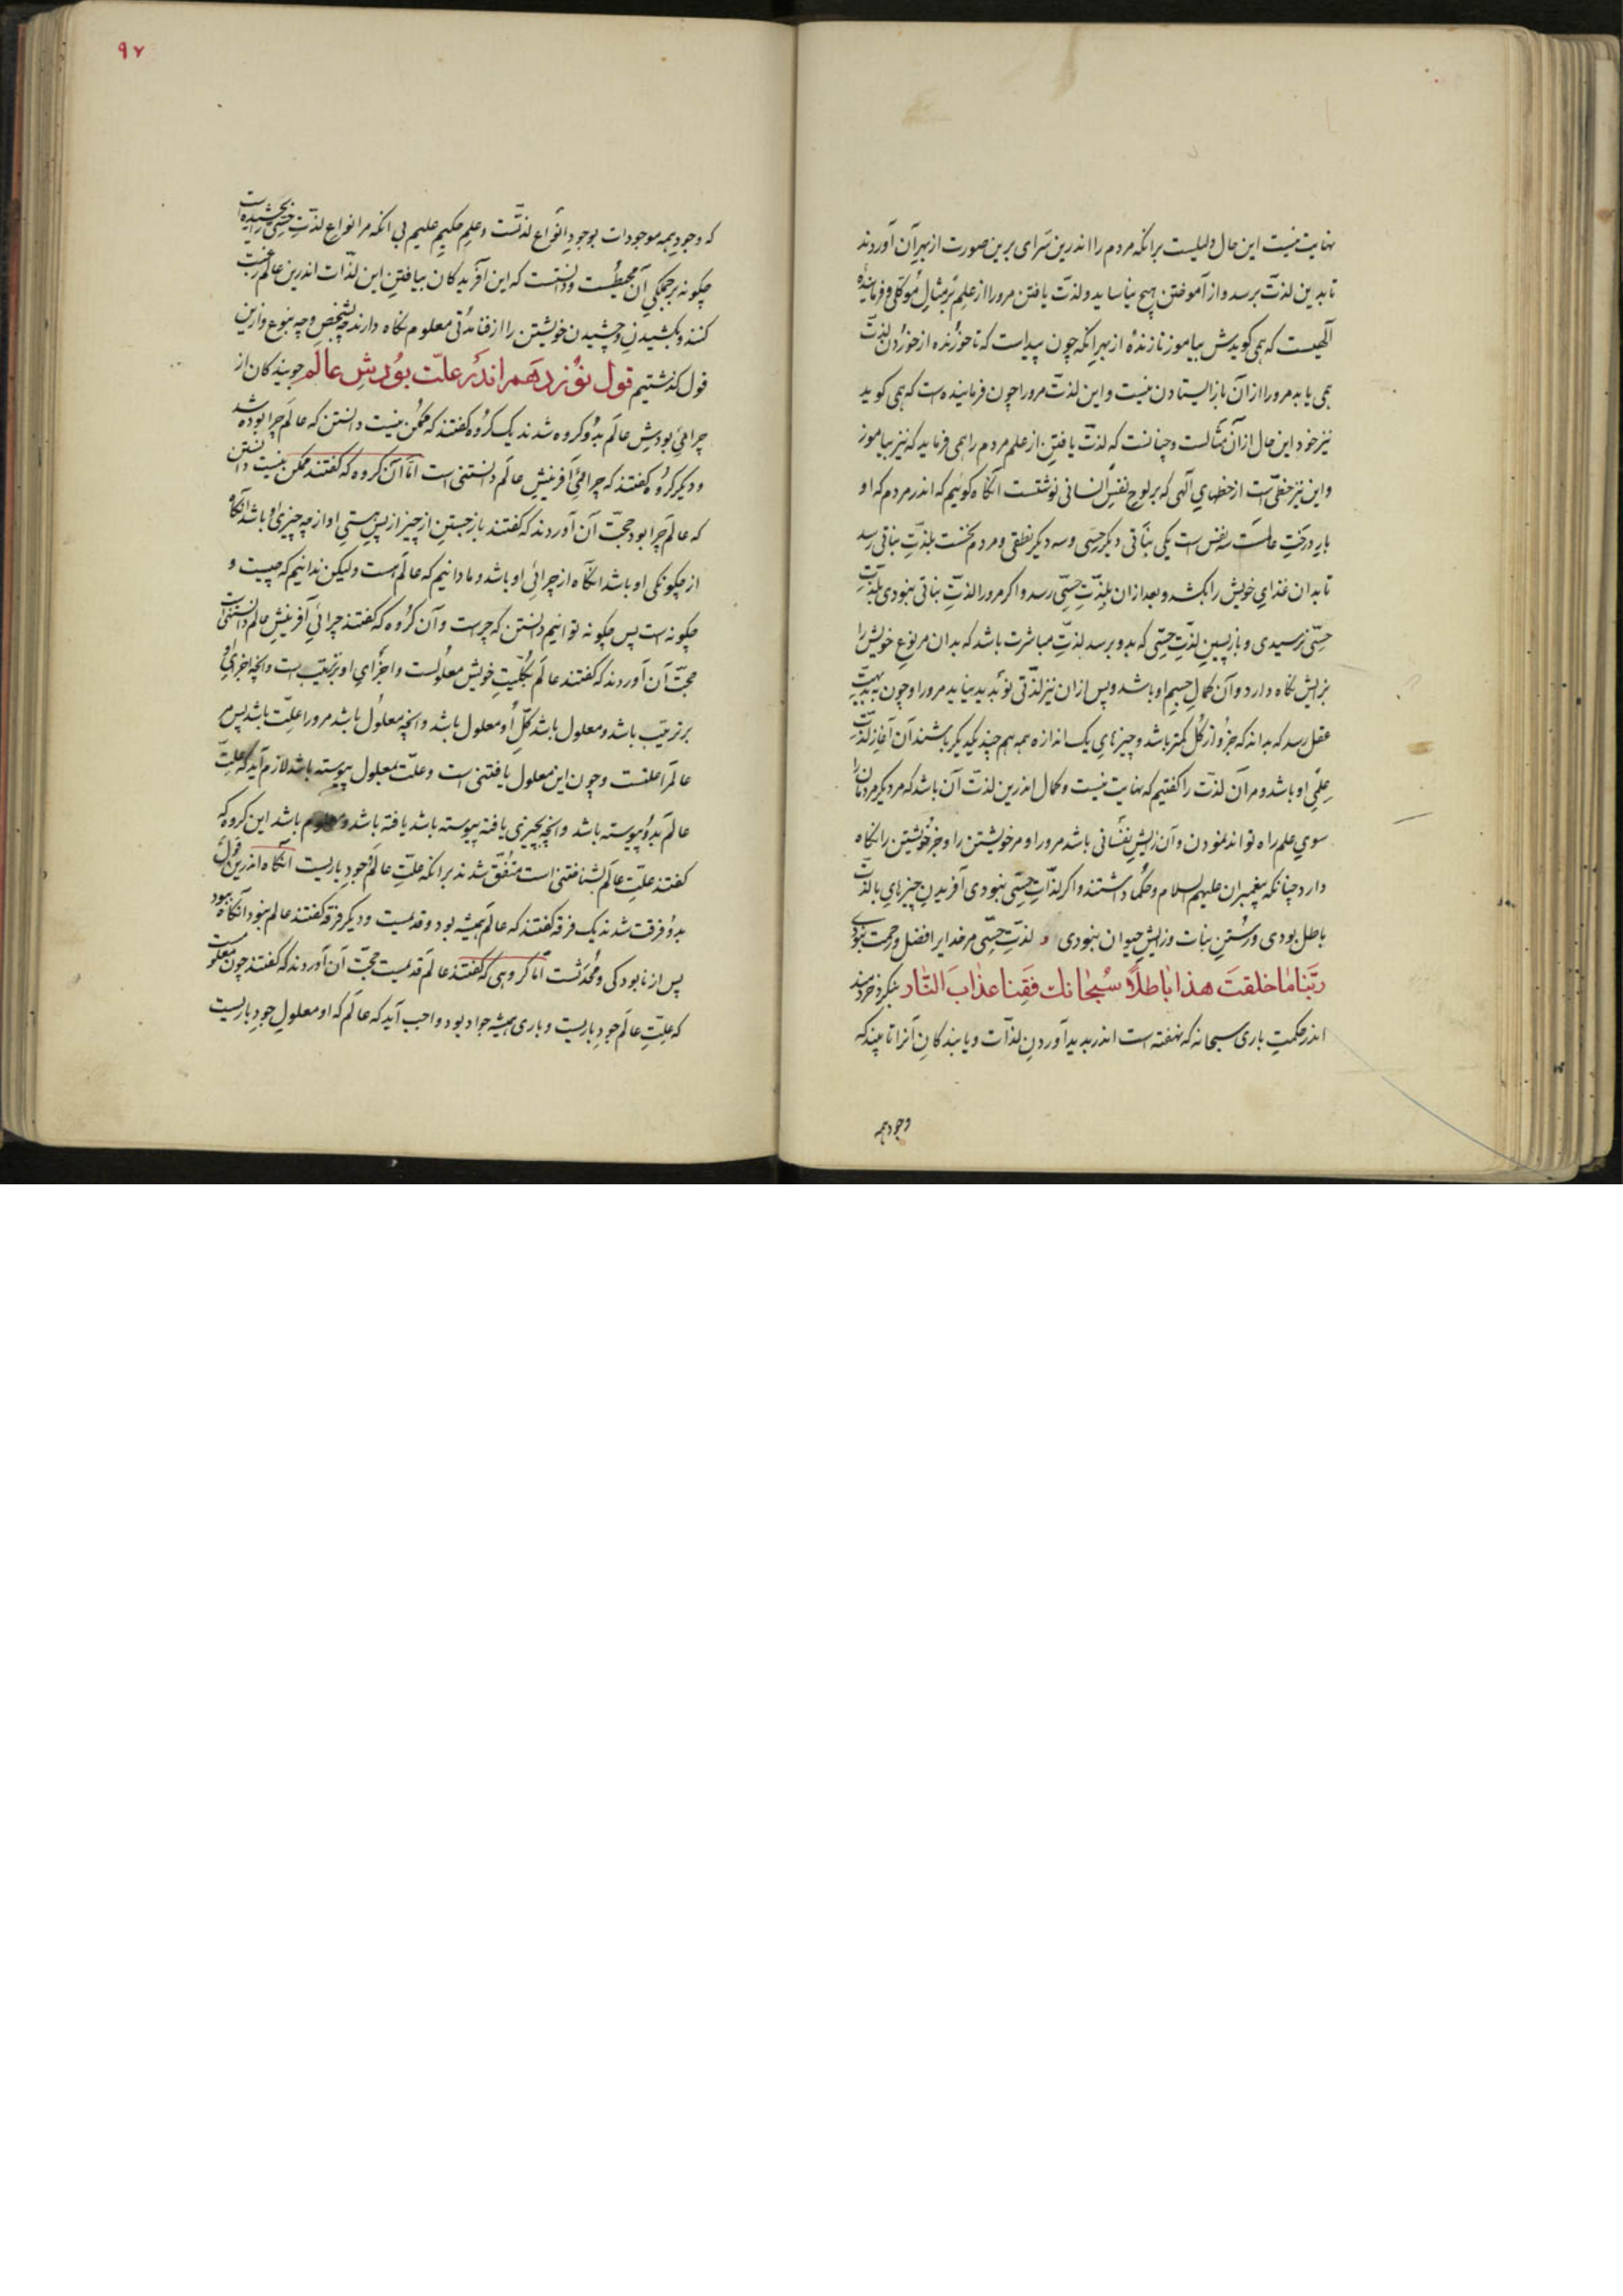 نهایت نیست این حال دلیلیست برانکه مردم را اندرین سرای برین صورت از بهر آن آوردند
تا بدین لذت برسد و از آموختن هیچ نیاساید و لذت یافتن مرورا از علم بر مثال موکلی و فرماینده
آلهیست که همی کویدش بیاموز تا زندهٔ از بهر انکه چون پیداست که تا خورنده از خوردن لذت
همی یابد مرورا ازان باز ایستادن نیست و این لذت مرورا چون فرماینده است که همی کوید
نیز خور این حال ازان مثالست و چنانست که لذت یافتن از علم مردم را همی فرماید که نیز بیاموز
و این نیز خطی است از خطهای آلهی که بر لوح نفس انسانی نوشتست انکاه کوئیم که اندر مردم که او
بار درخت عالمست سه نفس است یکی نباتی و دیکر حسی و سه دیکر نطقی و مردم نخست بلذت نباتی رسد
تا بدان غذای خویش را بکشد و بعد ازان بلذت حسی رسد و اکر مرورا لذت نباتی نبودی بلذت
حسی نرسیدی و باز پسین لذت حسی که بدو برسد لذت مباشرت باشد که بدان مر نوع خویش را
بزایش نکاه دارد و آن کمال جسم او باشد و پس ازان نیز لذتی نو بدید نیاید مرورا و چون به بدیهت
عقل رسد که بداند که جزو از کل کمتر باشد و چیزهای یک اندازه همه هم چند یکدیکر باشند آن آغاز لذت
علمی او باشد و مر آن لذت را کفتیم که نهایت نیست و کمال اندرین لذت آن باشد که مر دیکر مردمان را
سوی علم راه تواند نمودن و آن زایش نفسانی باشد مرورا و مر خویشتن را و جز خویشتن را نکاه
دارد چنانکه پیغمبران علیهم السلام و حکما داشتند و اکر لذات حسی نبودی آفریدن چیزهای بالذت
باطل بودی و رستن نبات و زایش حیوان نبودی و لذت حسی مر خدایرا فضل و رحمت نبودی
ربنا ما خلقت هذا باطلا سبحانك فقنا عذاب النار بنکرد خردمند
اندر حکمت باری سبحانه که نهفته است اندر بدید آوردن لذات و یابندکان آنرا تا بیند که
وجود همه
۹۷
که وجود همه موجودات بوجود انواع لذتست و علم حکیم علیم بی انکه مر انواع لذت حسی را بچشیده است
چکونه بر جملکی آن محیطست و دانست که این آفریدکان بیافتن این لذات اندرین عالم رغبت
کنند و بکشیدن و چشیدن خویشتن را از فنا مدتی معلوم نکاه دارند چه بشخص و چه بنوع و ازین
قول کذشتیم قول نوزدهم اندر علت بودش عالم جویندکان از
چرائی بودش عالم بدو کروه شدند یک کروه کفتند که ممکن نیست دانستن که عالم چرا بوده شد
و دیکر کروه کفتند که چرائی آفرینش عالم دانستنی است اما آن کروه که کفتند ممکن نیست دانستن
که عالم چرا بود حجت آن آوردند که کفتند باز جستن از چیز از پس هستی او از چه چیزی او باشد انکاه
از چکونکی او باشد انکاه از چرائی او باشد و ما دانیم که عالم است ولیکن ندانیم که چیست و
چکونه است پس چکونه توانیم دانستن که چراست و آن کروه که کفتند چرائی آفرینش عالم دانستنی است
حجت آن آوردند که کفتند عالم بکلیت خویش معلولست و اجزای او بر ترتیب است و انچه اجزای او
بر ترتیب باشد و معلول باشد کل او معلول باشد و انچه معلول باشد مرورا علت باشد پس مر
عالم را علتست و چون این معلول یافتنی است و علت بمعلول پیوسته باشد لازم آید که علت
عالم بدو پیوسته باشد و انچه بچیزی یافته پیوسته باشد یافته باشد و معلوم باشد این کروه که
کفتند علت عالم بشناختنی است متفق شدند برانکه علت عالم جود باریست انکاه اندرین قول
بدو فرقت شدند یک فرقه کفتند که عالم همیشه بود و قدیمست و دیکر فرقه کفتند عالم نبود انکاه ببود
پس از نابودکی و محدثست اما کروهی که کفتند عالم قدیمست حجت آن آوردند که کفتند چون معلومست
که علت عالم جود باریست و باری همیشه جواد بود واجب آید که عالم که او معلول جود باریست